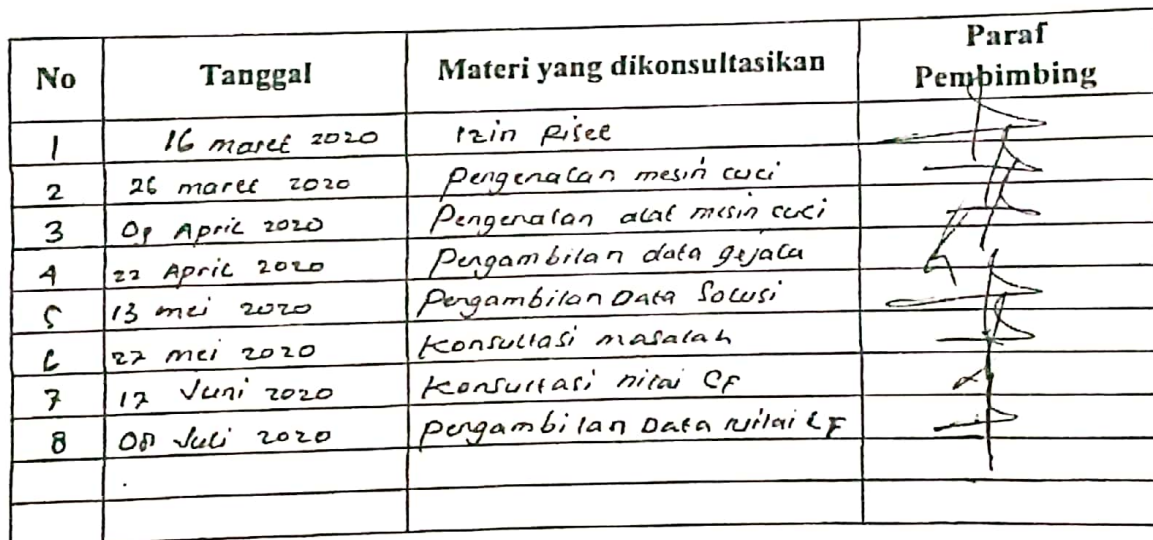 No Tanggal Materi yang dikonsultasikan Paraf Pembimbing
1 16 maret 2020 Izin Riset
2 26 maret 2020 Pengenalan mesin cuci
3 April 2020 Pengenalan alat mesin cuci
4 22 April 2020 Pengambilan data gejala
5 13 mei 2020 Pengambilan Data Solusi
6 27 mei 2020 Konsultasi masalah
7 17 Juni 2020 Konsultasi nilai CF
8 08 Juli 2020 Pengambilan Data nilai CF